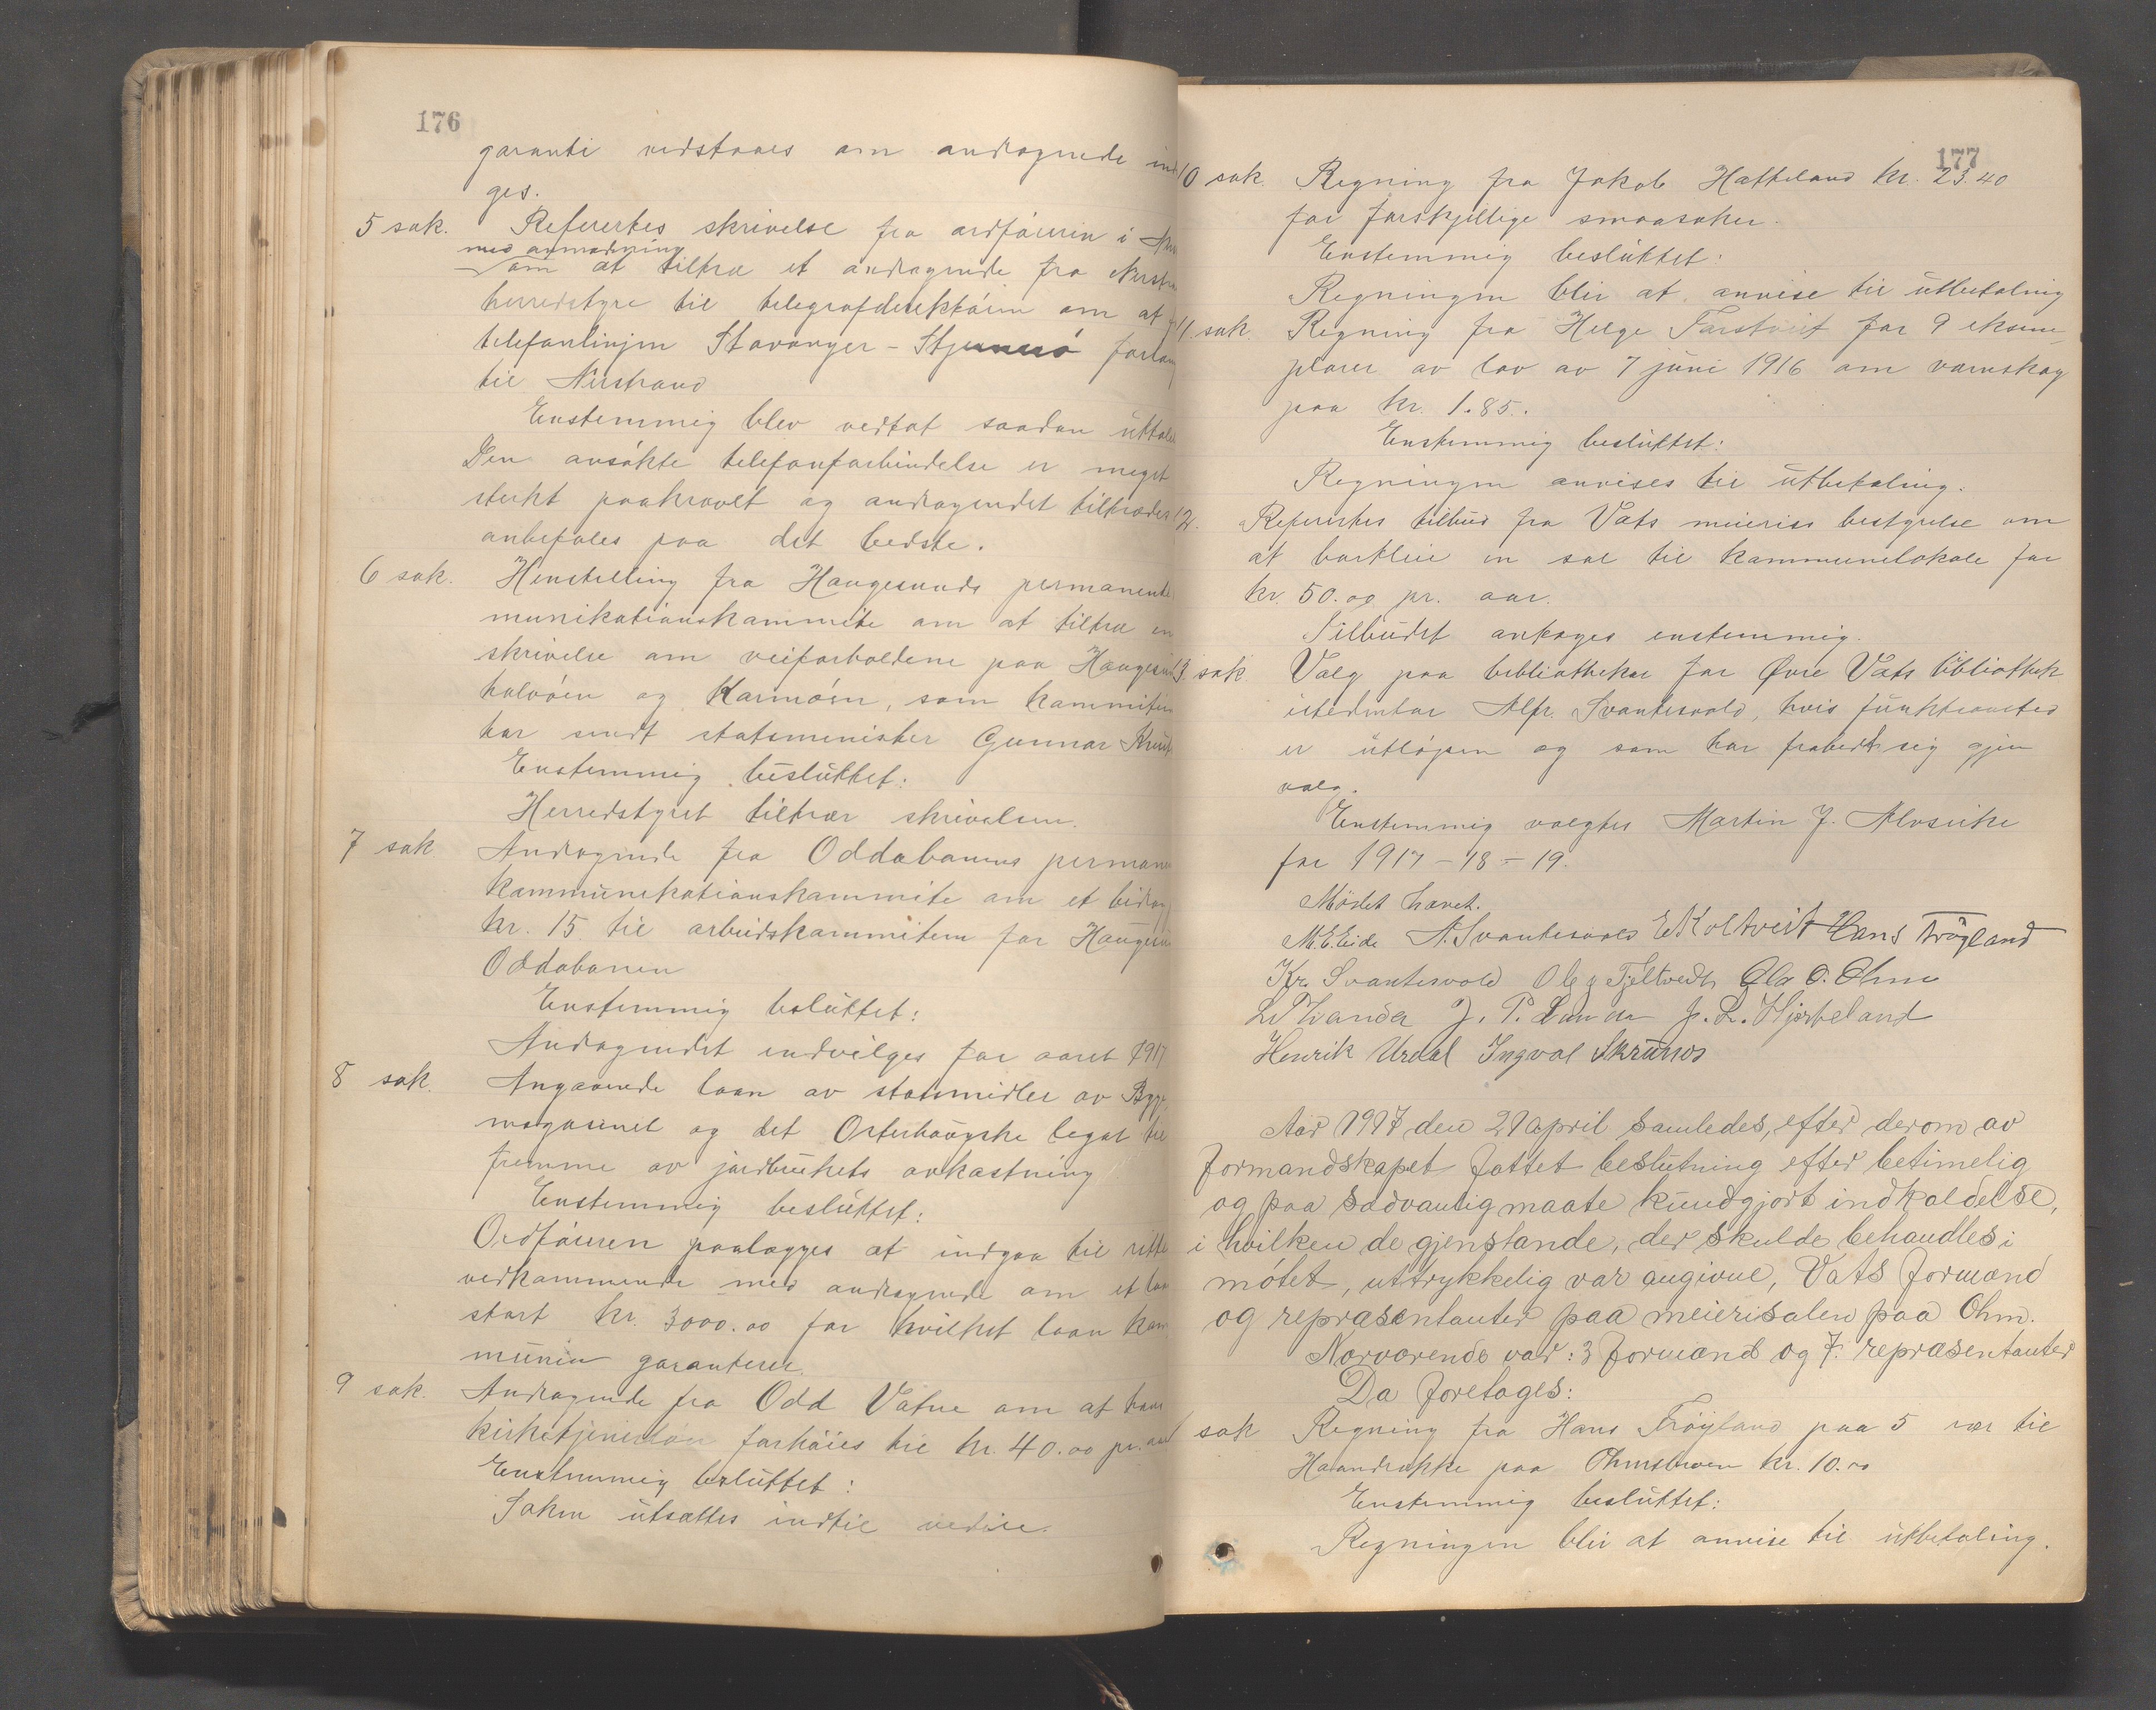 176
garanti vedstaaes om andragende ind
ges.
5 sak. Refertes skrivelse fra ordføreren i
med anmodning
om at tiltræ et andragende fra Nerstra
herredstyre til telegrafdirektøren om at
telefonlinjen Stavanger - Stjernerö forlæng
til Nerstrand
Enstemmig blev vedtat saadan uttale
Den ansøkte telefonforbindelse er meget
sterkt paakrævet og andragendet tiltrædes
anbefales paa det bedste.
6 sak. Henstilling fra Haugesunds permanente
munikationskommite om at tiltræ en
skrivelse om veiforholdene paa Haugesund
halvøen og Karmøen, som kommiteen
har sendt statsminister Gunnar Knuds
Enstemmig besluttet:
Herredstyret tiltrær skrivelsen.
7 sak. Andragende fra Oddabanens permanen
kommunikationskommite om et bidrag
kr. 15 til arbeidskommiteen for Haugesun
Oddabanen
Enstemmig besluttet:
Andragendet indvilges for aaret 1917
8 sak. Angaaende laan av statsmidler av Byg
magasinet og det Osterhaugske legat til
fremme av jordbrukets avkastning
Enstemmig besluttet:
Ordføreren paalægges at indgaa til rette
vedkommende med andragende om et laan
stort kr. 3000.00 for hvilket laan kom
munen garanterer
9 sak. Andragende fra Odd Vatne om at hans
kirketjenerløn forhøies til kr. 40.00 pr. aar
Enstemmig besluttet:
Saken utsættes indtil videre.
177
10 sak. Regning fra Jakob Hatteland kr. 23.40
for forskjellige smaasaker.
Enstemmig besluttet:
Regningen blir at anvise til utbetaling
11 sak. Regning fra Helge Farstveit for 9 eksem-
plarer av lov av 7 juni 1916 om vernskog
paa kr. 1.85.
Enstemmig besluttet:
Regningen anvises til utbetaling.
12. Refertes tilbud fra Vats meieries bestyrelse om
at bortleie en sal til kommunelokale for
kr. 50.00 pr. aar.
Tilbudet antages enstemmig.
13 sak Valg paa bibliothekar for Øvre Vats bibliothek
istedenfor Alfr. Svantesvold, hvis funktionstid
er utløpen og som har frabedt sig gjen
valg.
Enstemmig valgtes Martin J. Alvseike
for 1917-18-19.
Mødet hævet.
M. E. Eide A. Svantesvold E Koltveit Hans Frøyland
Kr. Svantesvold Ole G Fjeltvedt Ola O. Ohm
J. P. Lunde J. L. Hjorteland
Henrik Urdal Ingval Skrunes
Aar 1917 den 21 april samledes, efter derom av
formandskapet fattet beslutning efter betimelig
og paa sædvanlig maate kundgjort indkaldelse,
i hvilken de gjenstande, der skulde behandles i
møtet, uttrykkelig var angivne, Vats formænd
og repræsentanter paa meierisalen paa Ohm.
Nærværende var: 3 formænd og 7 repræsentanter
Da foretages:
1 sak Regning fra Hans Frøyland paa 5 rør til
Haandrække paa Ohmsbroen kr. 10.00
Enstemmig besluttet:
Regningen blir at anvise til utbetaling.